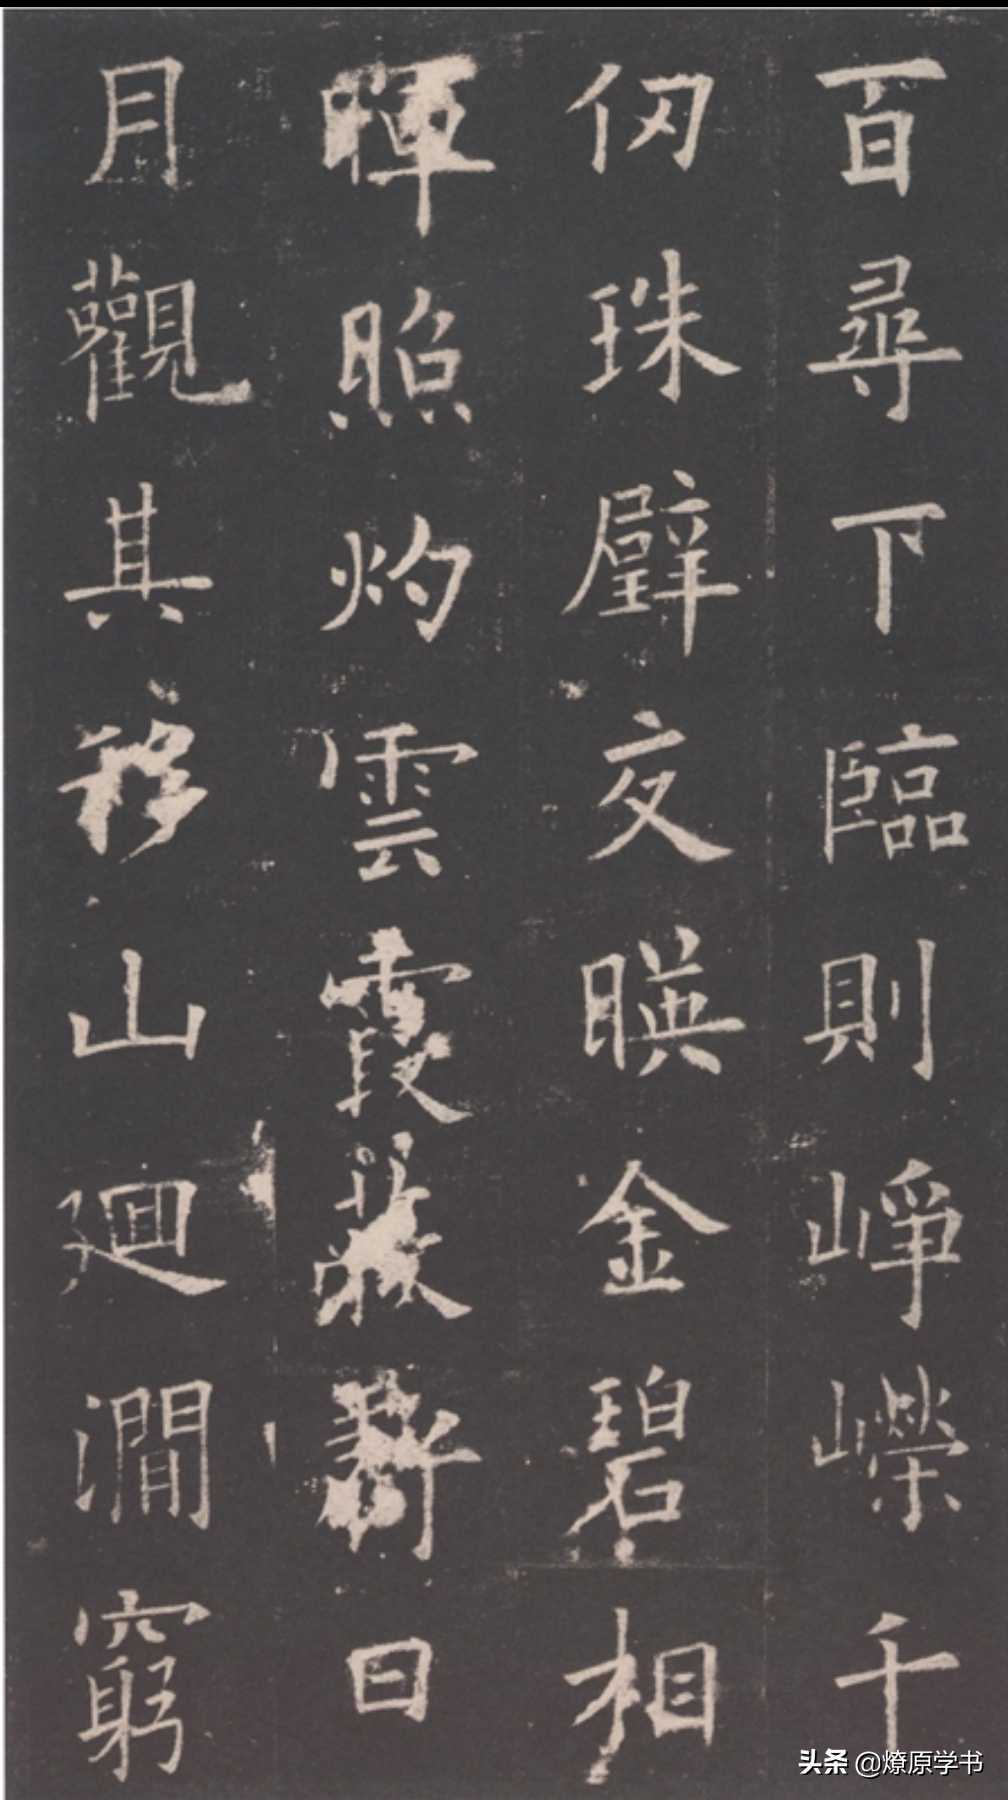 百尋下臨則崢嶸千
仞珠璧交暎金碧相
暉照灼雲霞蔽虧日
月觀其移山廻澗窮
头条 @燎原学书